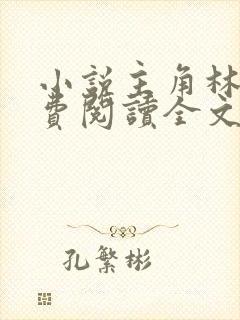 小説主角林
費閱讀全文
孔繁彬